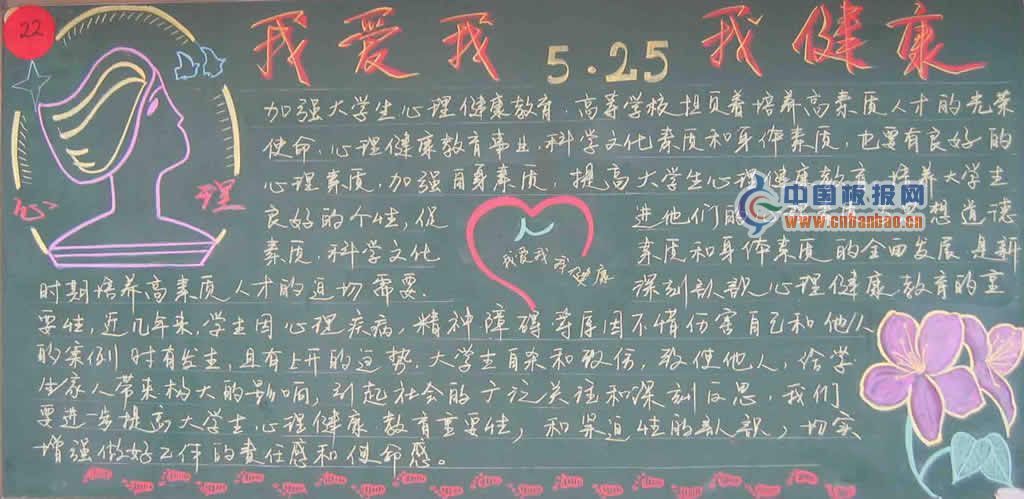 22
我爱我 5·25 我健康
加强大学生心理健康教育.高等学校担负着培养高素质人才的光荣
使命.心理健康教育事业.科学文化素质和身体素质,也要有良好的
心理素质.加强自身素质,提高大学生心理健康教育.培养大学生
良好的个性,促进他们的思想道德
素质.科学文化素质和身体素质的全面发展是新
时期培养高素质人才的迫切需要.深刻认识心理健康教育的重
要性,近几年来,学生因心理疾病,精神障碍等原因不惜伤害自己和他人
的案例时有发生,且有上升的运势.大学生自杀和致伤,致使他人,给学
生家人带来极大的影响,引起社会的广泛关注和深刻反思,我们
要进一步提高大学生心理健康教育重要性,和紧迫性的认识,切实
增强做好工作的责任感和使命感。
心理
我爱我 我健康
中国板报网
www.cnbanbao.cn